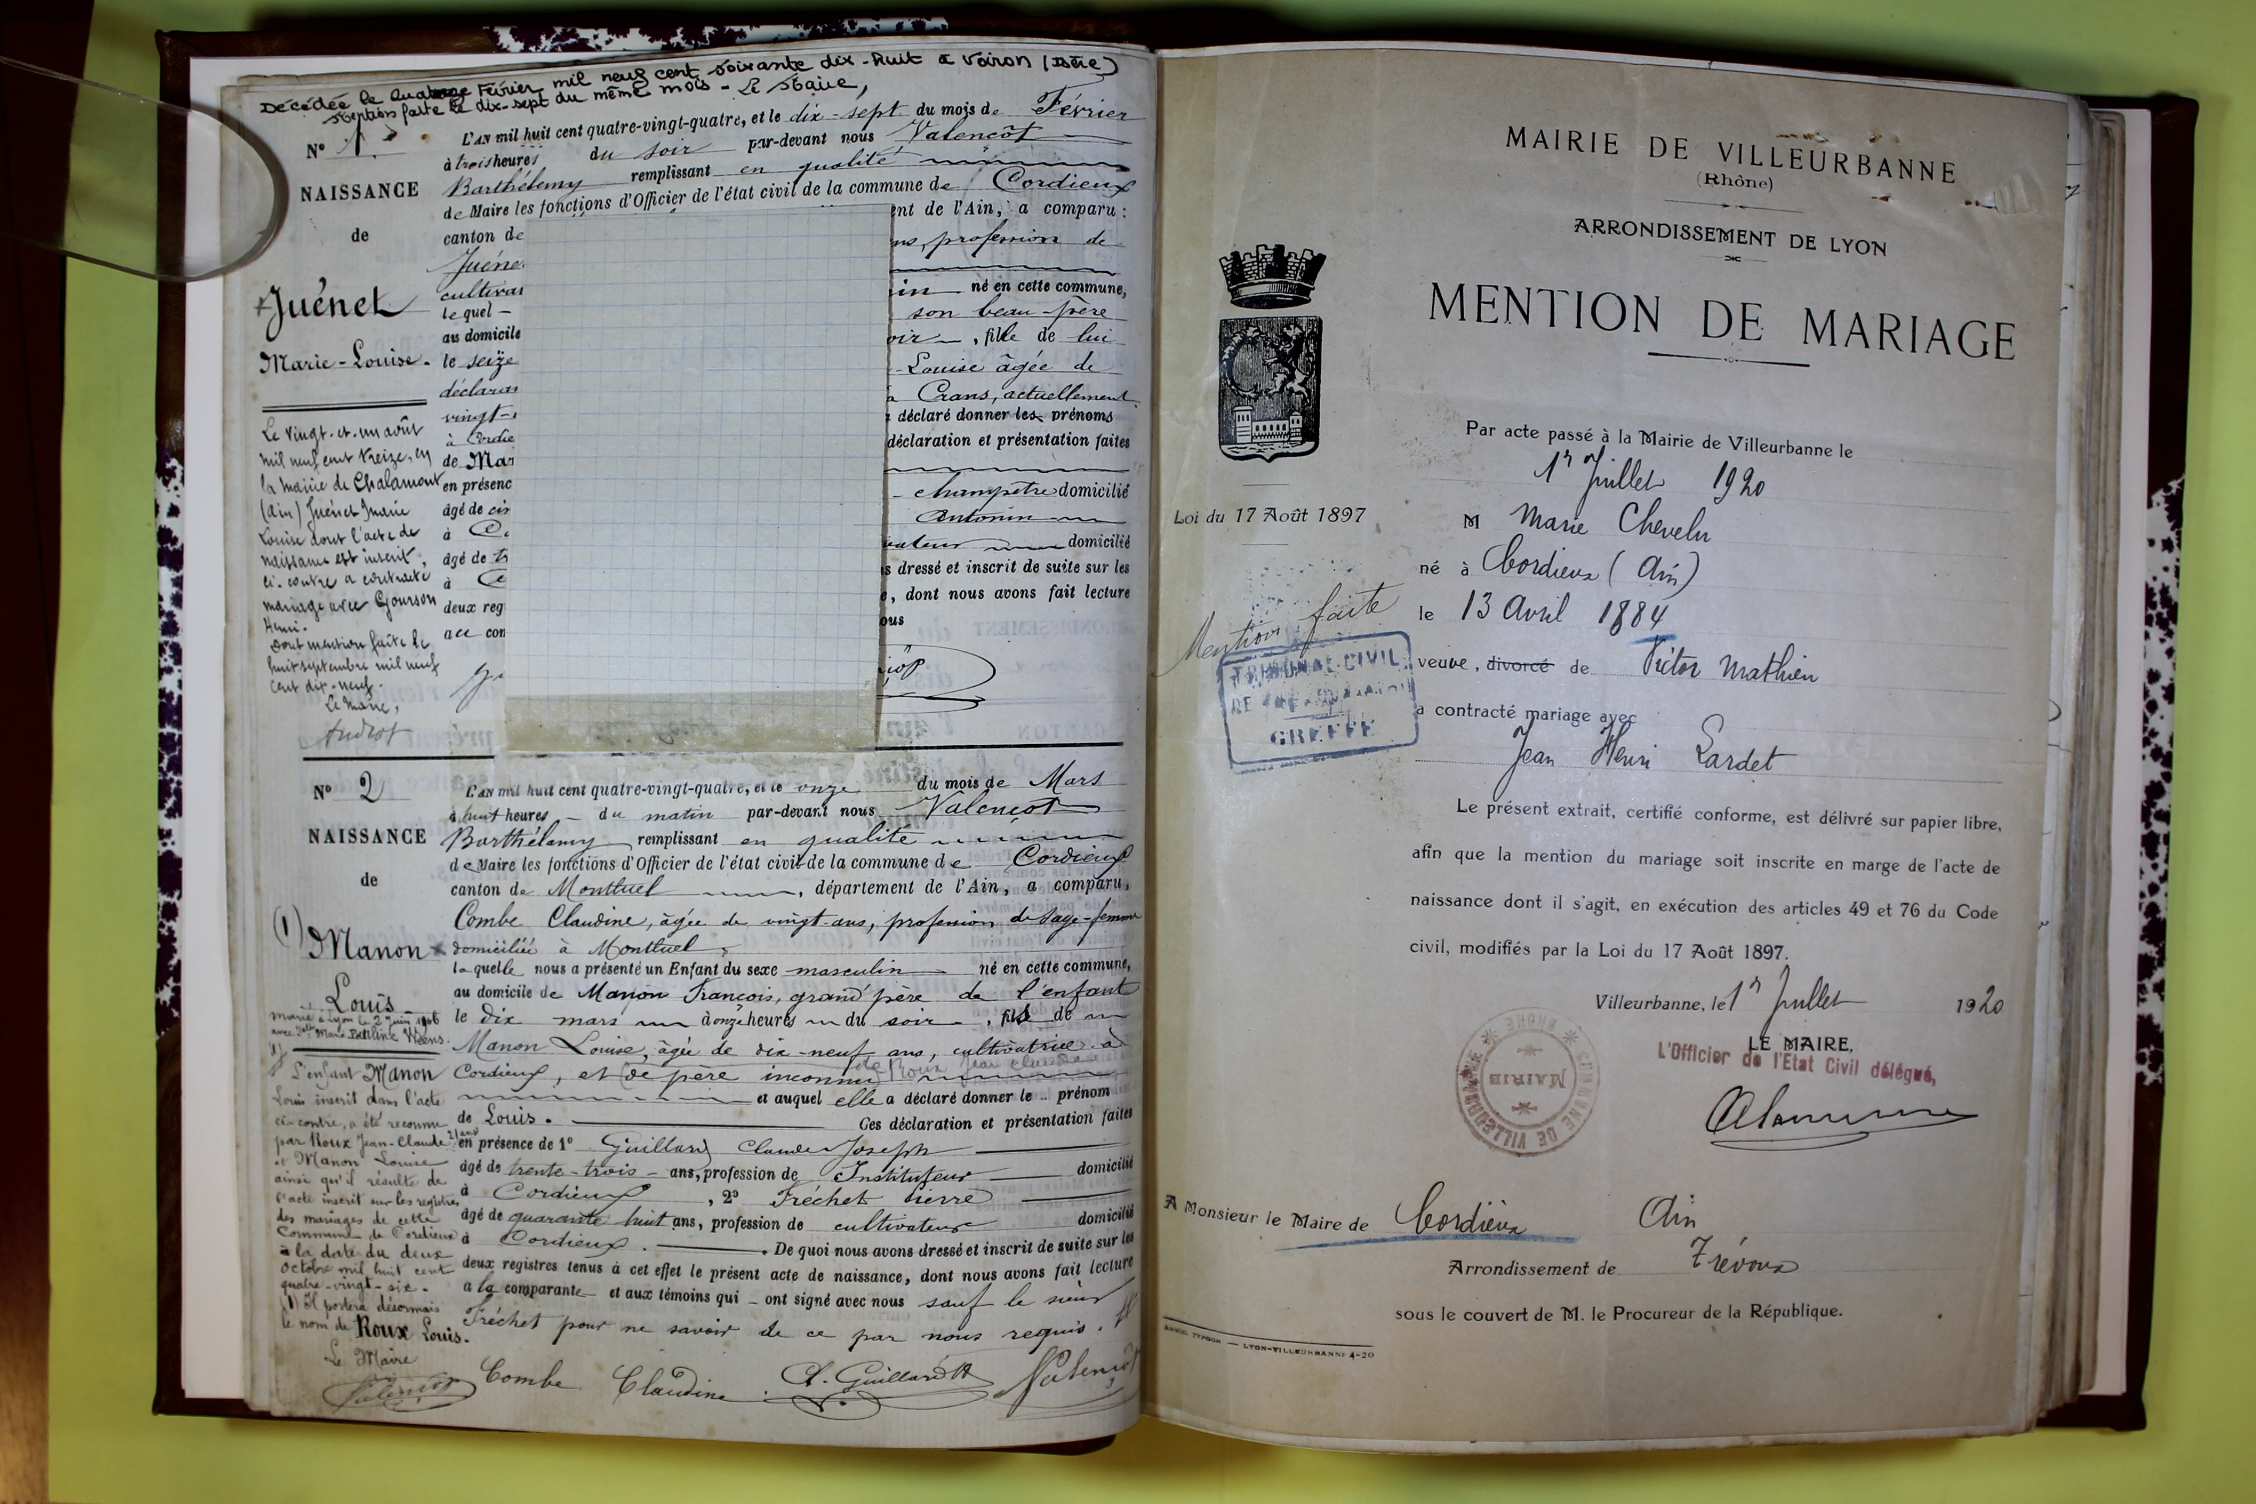 Décédée le quatorze Février mil neuf cent soixante dix-huit à Voiron (Isère)
Mention faite le dix-sept du même mois - Le Maire,
N° 1
NAISSANCE
de
Juénet
Marie-Louise.
Le vingt-et-un août
mil neuf cent treize, en
la mairie de Chalamont
(Ain) Juénet Marie
Louise dont l'acte de
naissance est inscrit
ci-contre a contracté
mariage avec Gourson
Henri.
Dont mention faite le
huit septembre mil neuf
cent dix-neuf.
Le Maire,
L'AN mil huit cent quatre-vingt-quatre, et le dix-sept du mois de Février
à trois heures du soir par-devant nous Valençot
Barthélemy remplissant en qualité
de Maire les fonctions d'Officier de l'état civil de la commune de Cordieux
canton de ent de l'Ain, a comparu :
Juéne ns, profession de
cultivat
le quel - in né en cette commune,
au domicile son beau-frère
le seize oir, fille de lui
déclaran -Louise âgée de
vingt- à Crans, actuellement
à Cordie déclaré donner les prénoms
de Mar déclaration et présentation faites
en présenc
âgé de cin - champêtre domicilié
à C Antonin
âgé de tr vateur domicilié
à C s dressé et inscrit de suite sur les
deux reg e, dont nous avons fait lecture
au con ous
N° 2
NAISSANCE
de
(1) Manon
Louis
marié à Lyon le 2 Juin 1906
avec Marie Pauline Weens.
L'enfant Manon
Louis inscrit dans l'acte
ci-contre, a été reconnu
par Roux Jean-Claude 21 ans
et Manon Louise
ainsi qu'il résulte de
l'acte inscrit sur les registres
des mariages de cette
Commune de Cordieux
à la date du deux
octobre mil huit cent
quatre-vingt-six.
(1) Il portera désormais
le nom de Roux Louis.
Le Maire
Valençot
L'AN mil huit cent quatre-vingt-quatre, et le onze du mois de Mars
à huit heures - du matin par-devant nous Valençot
Barthélemy remplissant en qualité
de Maire les fonctions d'Officier de l'état civil de la commune de Cordieux
canton de Montluel, département de l'Ain, a comparu,
Combe Claudine, âgée de vingt ans, profession de Sage-femme
domiciliée à Montluel,
laquelle nous a présenté un Enfant du sexe masculin né en cette commune,
au domicile de Manon François, grand'père de l'enfant
le dix mars à onze heures du soir, fils de
Manon Louise, âgée de dix-neuf ans, cultivatrice à
Cordieux, et (de père inconnu de Roux Jean Claude
et auquel elle a déclaré donner le prénom
de Louis. Ces déclaration et présentation faites
en présence de 1° Guillard Claude Joseph
âgé de trente-trois - ans, profession de Instituteur domicilié
à Cordieux, 2° Fréchet Pierre
âgé de quarante huit ans, profession de cultivateur domicilié
à Cordieux. De quoi nous avons dressé et inscrit de suite sur les
deux registres tenus à cet effet le présent acte de naissance, dont nous avons fait lecture
a la comparante et aux témoins qui - ont signé avec nous sauf le sieur
Fréchet pour ne savoir de ce par nous requis.
Combe Claudine. Guillard Valençot
MAIRIE DE VILLEURBANNE
(Rhône)
ARRONDISSEMENT DE LYON
MENTION DE MARIAGE
Loi du 17 Août 1897
Mention faite
TRIBUNAL CIVIL
GREFFE
Par acte passé à la Mairie de Villeurbanne le
1r Juillet 1920
M Marie Chevelu
né à Cordieux (Ain)
le 13 Avril 1884
veuve, divorcé de Victor Mathieu
a contracté mariage avec
Jean Henri Lardet
Le présent extrait, certifié conforme, est délivré sur papier libre,
afin que la mention du mariage soit inscrite en marge de l'acte de
naissance dont il s'agit, en exécution des articles 49 et 76 du Code
civil, modifiés par la Loi du 17 Août 1897.
Villeurbanne, le 1r Juillet 1920
LE MAIRE,
L'Officier de l'Etat Civil délégué,
COMMUNE DE VILLEURBANNE
RHONE
MAIRIE
A Monsieur le Maire de Cordieux Ain
Arrondissement de Trévoux
sous le couvert de M. le Procureur de la République.
LYON-VILLEURBANNE 4-20